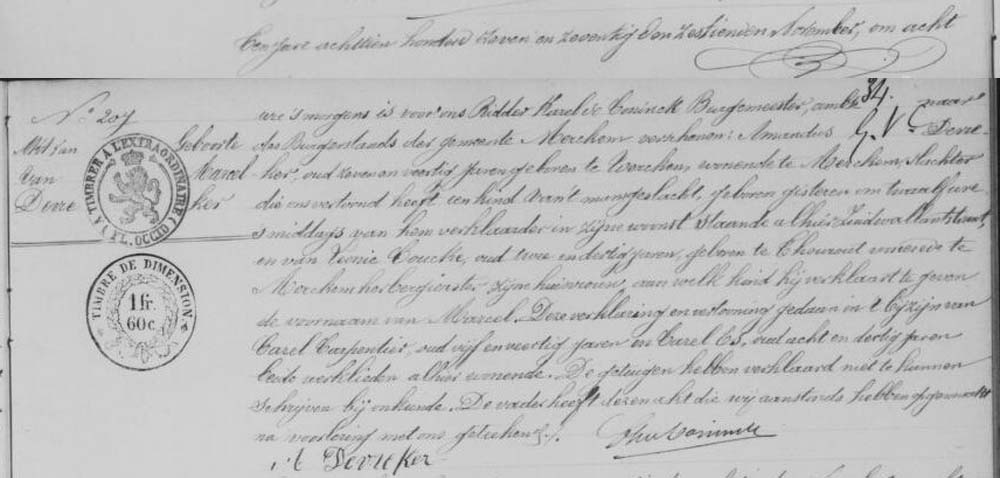 Een jare achttien honderd zeven en zeventig den zestienden November, om acht
ure 's morgens is voor ons Ridder Karel de Coninck Burgemeester, ambt 34. naar
N.o 207
des Burgerstands der gemeente Merchem verschenen: Amandus G. V. Devre
Akt van Geboorte
ker, oud zeven en veertig jaren geboren te Werchen, wonende te Merchem, slachter
Van Marcel
die ons vertoond heeft een kind van 't mansgeslacht, geboren gisteren om twaalf ure
Devre ker
's middags van hem verklaarder in zijne woonst staande alhier Zuidwallantstraat,
en van Leonie Doucke, oud twee en dertig jaren, geboren te Thourout wonende te
Merchem herbergierster zijne huisvrouw, aan welk kind hij verklaart te geven
de voornaam van Marcel. Deze verklaring en vertooning gedaan in 't bijzijn van
Carel Carpentier, oud vijf en veertig jaren en Carel Es, oud acht en dertig jaren
beide werklieden alhier wonende. De getuigen hebben verklaard niet te kunnen
schrijven bij onkunde. De vader heeft dezen akt die wij aanstonds hebben opgemaakt
na voorlezing met ons geteekend.
A Devreker
A TIMBRER A L'EXTRAORDINAIRE
(FL. OCCID.)
TIMBRE DE DIMENSION
1 fr.
60 c.